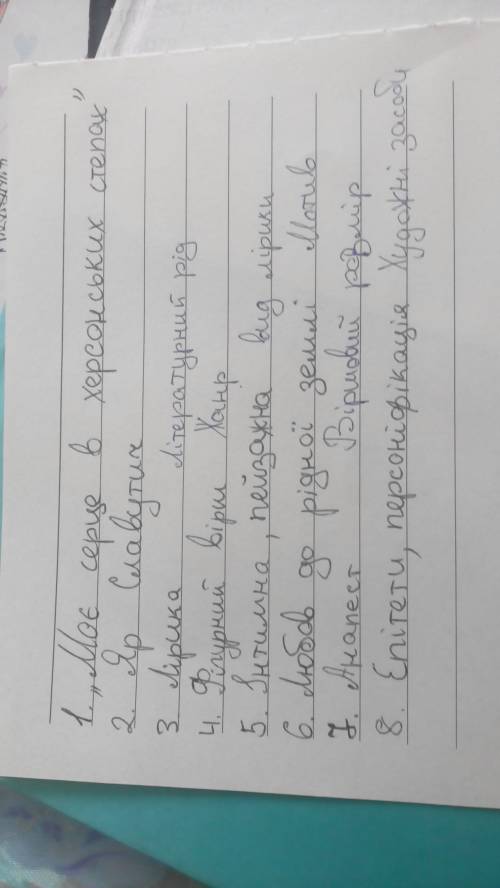 1. „Моє серце в херсонських степах"
2. Яр Славутич
3 Лірика Літературний рід
4. Фігурний вірш Жанр
5. Інтимна, пейзажна вид лірики
6. Любов до рідної землі Мотив
7. Анапест Віршовий розмір
8. Епітети, персоніфікація Художні засоби